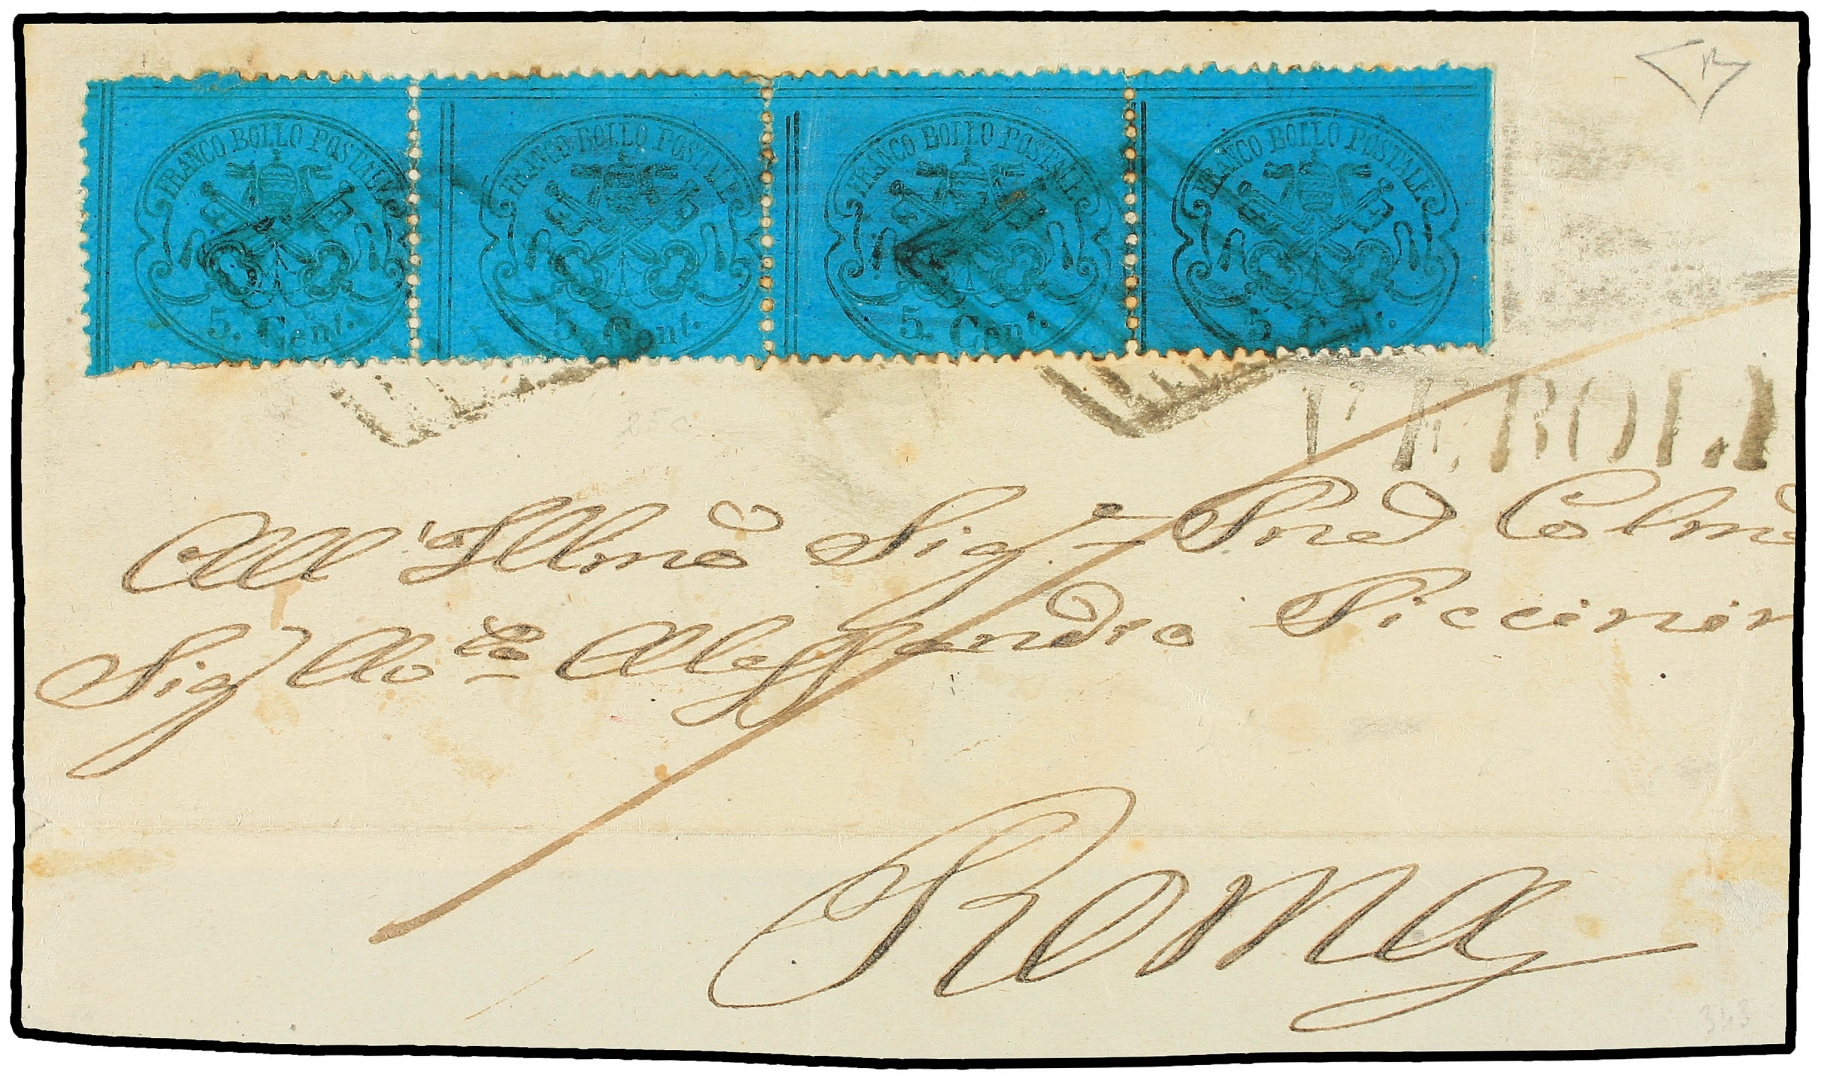 FRANCO BOLLO POSTALE FRANCO BOLLO POSTALE FRANCO BOLLO POSTALE FRANCO BOLLO POSTALE
5. Cent. 5. Cent. 5. Cent. 5. Cent.
VEROLI
All'Illmo Sig.e Pne Colmo
Sig Alessandro Piccinin
Roma
343